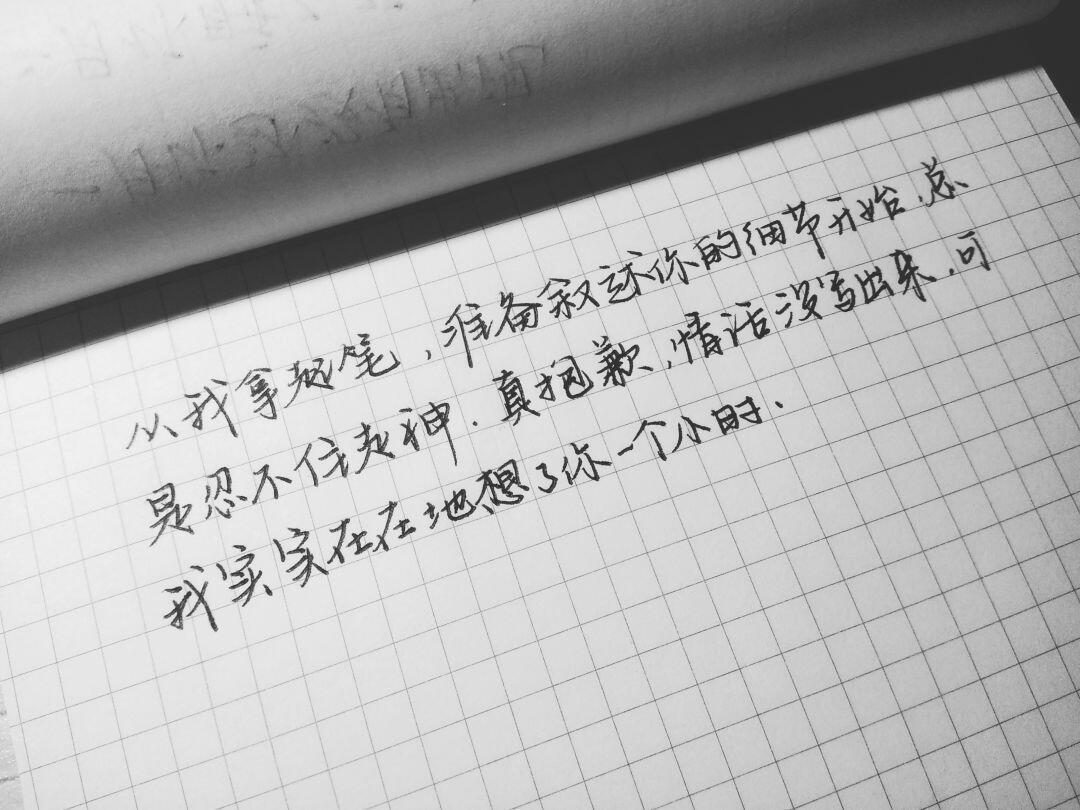 从我拿起笔，准备叙述你的细节开始，总
是忍不住走神．真抱歉，情话没写出来，可
我实实在在地想了你一个小时．